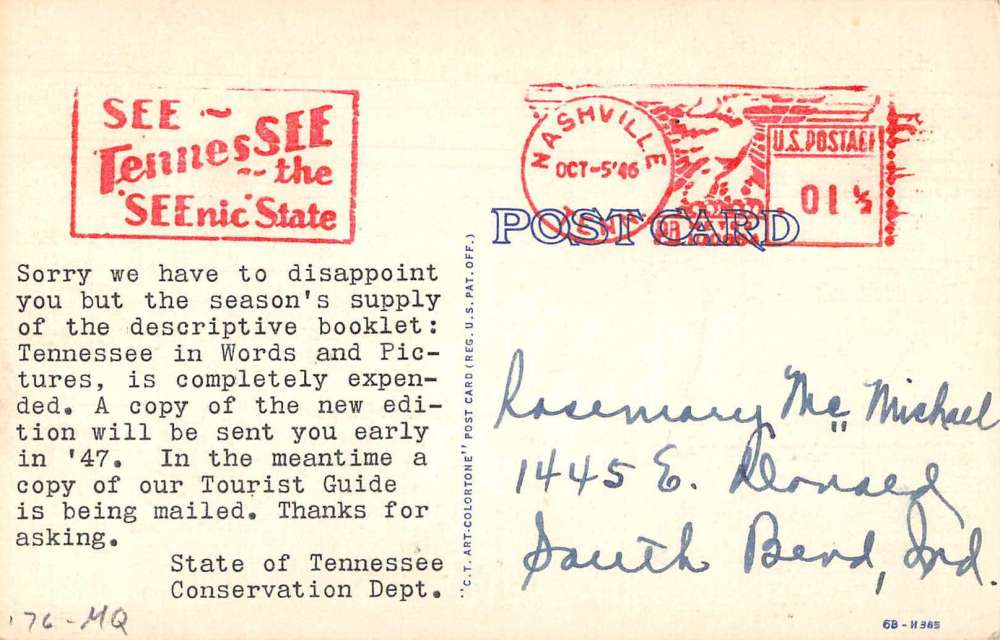 SEE ~
TennesSEE
-- the
"SEEnic" State
NASHVILLE
OCT-5'46
TENN.
U.S. POSTAGE
01 ½
POST CARD
Sorry we have to disappoint
you but the season's supply
of the descriptive booklet:
Tennessee in Words and Pic-
tures, is completely expen-
ded. A copy of the new edi-
tion will be sent you early
in '47.  In the meantime a
copy of our Tourist Guide
is being mailed. Thanks for
asking.
State of Tennessee
Conservation Dept.
"C.T. ART-COLORTONE" POST CARD (REG. U.S. PAT. OFF.)
Rosemary Mc Michael
1445 E. Donald
South Bend, Ind.
176-MQ
6B-H385